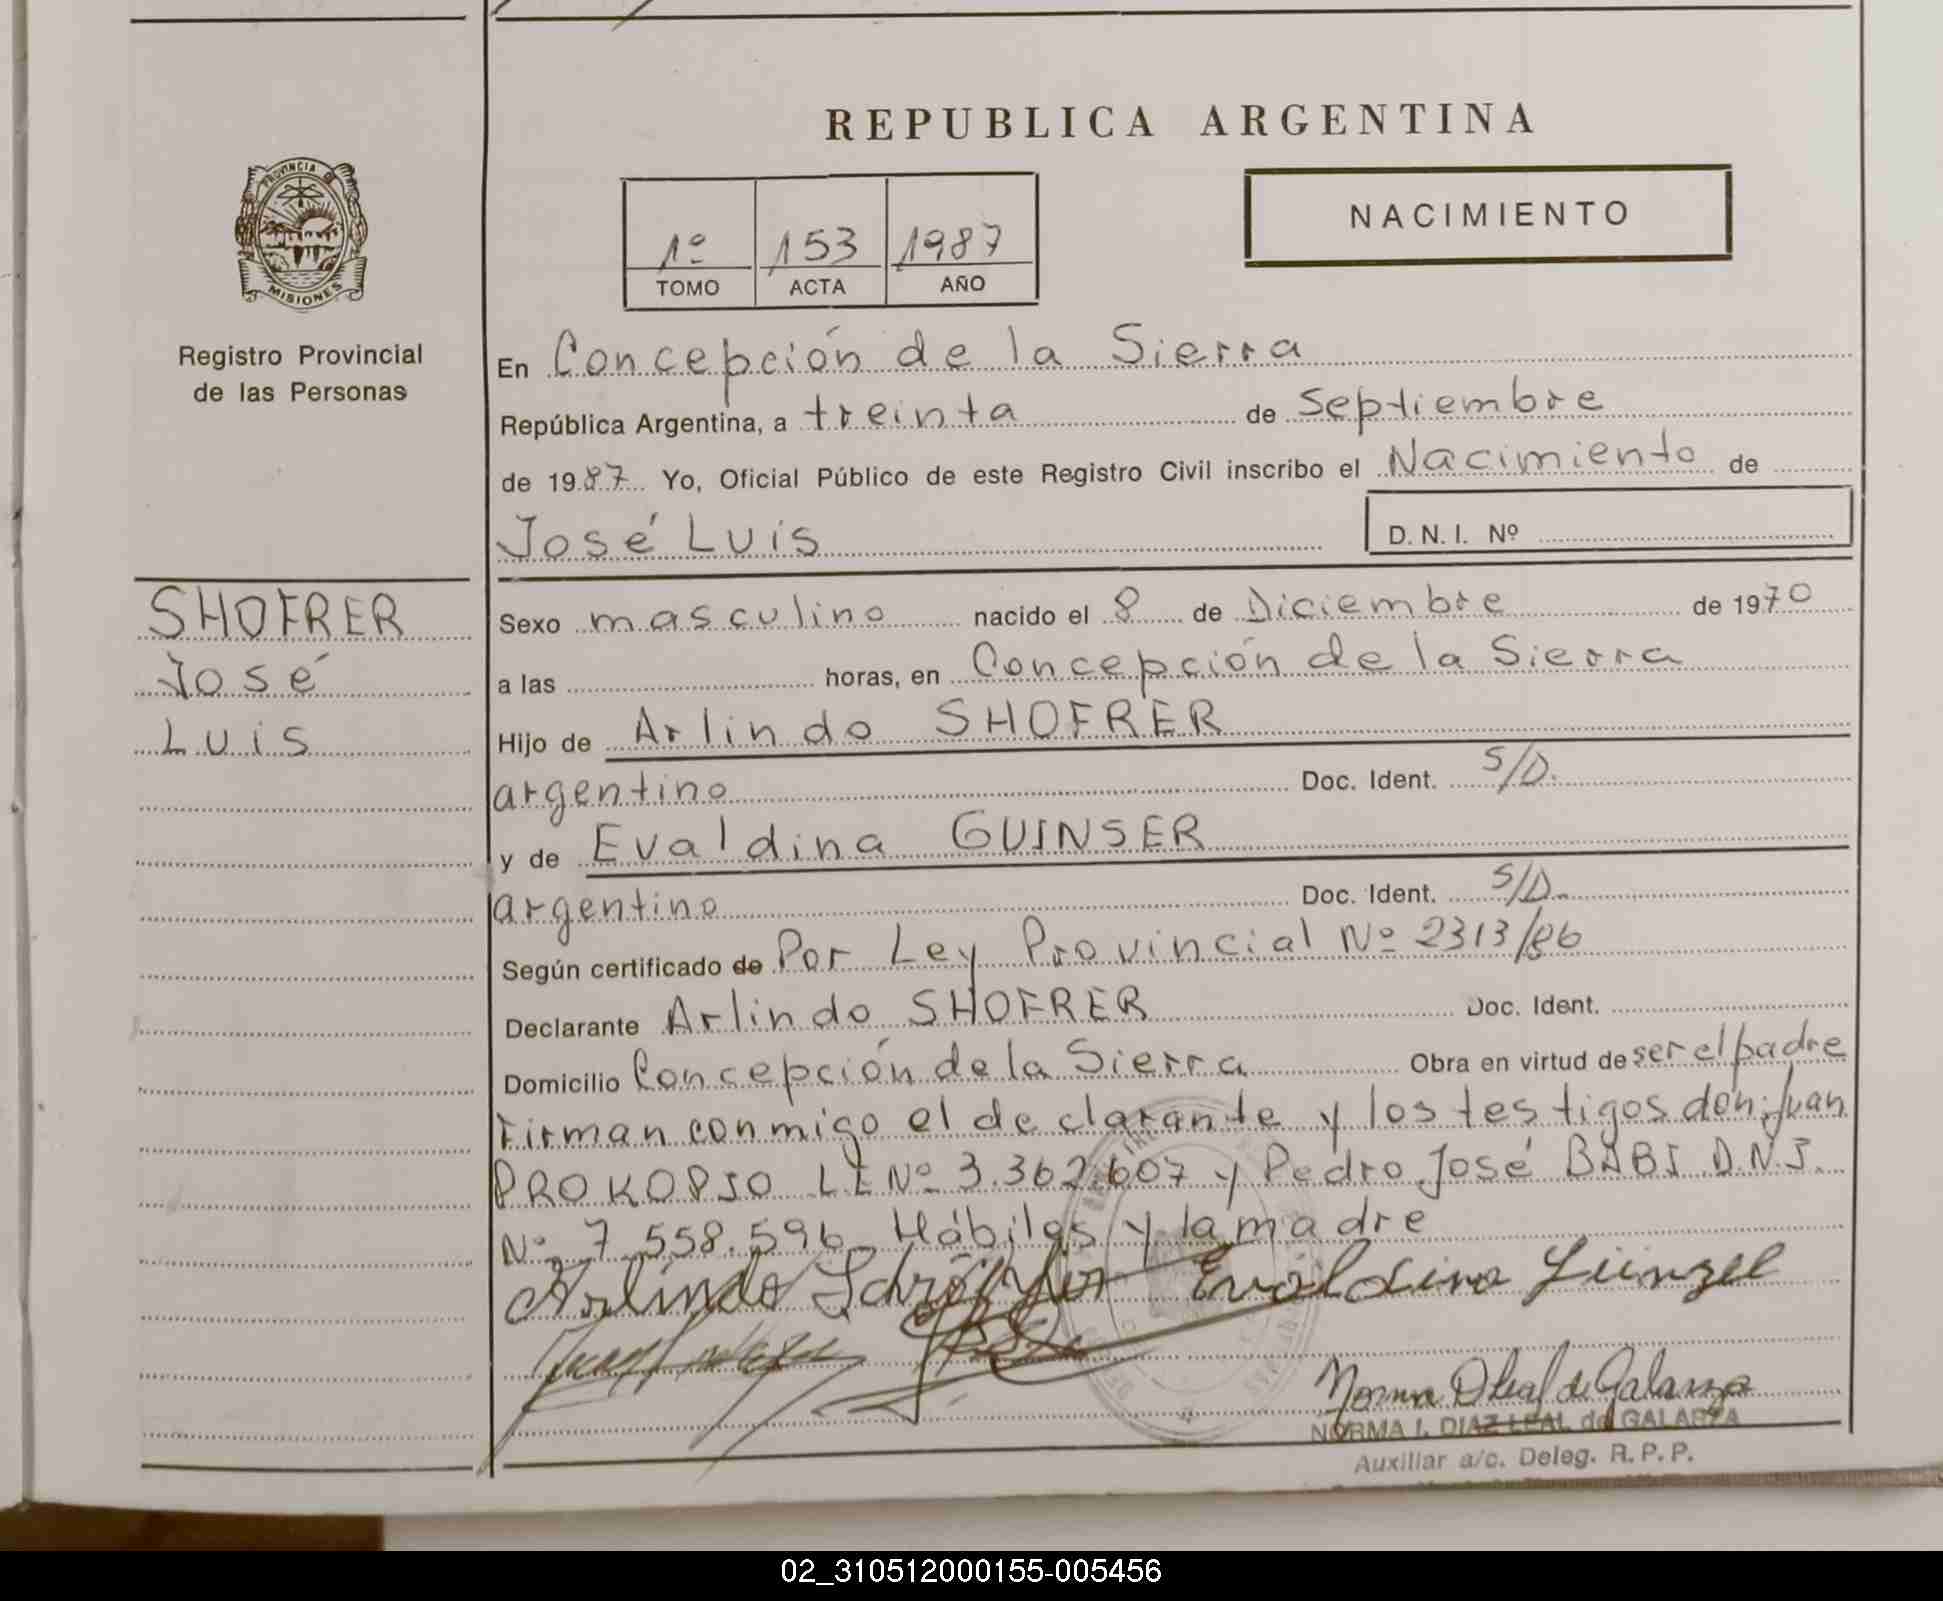 REPUBLICA ARGENTINA
PROVINCIA D
MISIONES
Registro Provincial
de las Personas
1º 153 1987
TOMO ACTA AÑO
NACIMIENTO
En Concepción de la Sierra
República Argentina, a treinta de Septiembre
de 1987 Yo, Oficial Público de este Registro Civil inscribo el Nacimiento de
José Luis D.N.I. Nº
SHOFRER
José
Luis
Sexo masculino nacido el 8 de Diciembre de 1970
a las horas, en Concepción de la Sierra
Hijo de Arlindo SHOFRER
argentino Doc. Ident. S/D.
y de Evaldina GUINSER
argentino Doc. Ident. S/D.
Según certificado de Por Ley Provincial Nº 2313/86
Declarante Arlindo SHOFRER Doc. Ident.
Domicilio Concepción de la Sierra Obra en virtud de ser el padre
Firman conmigo el declarante y los testigos don: Juan
PROKOPIO L.E Nº 3.362.607 y Pedro José BABI D.N.I.
Nº 7.558.596 Hábiles y la madre
Arlindo Evaldina
Norma D Leal de Galarza
NORMA I. DIAZ LEAL de GALARZA
Auxiliar a/c. Deleg. R.P.P.
02_310512000155-005456